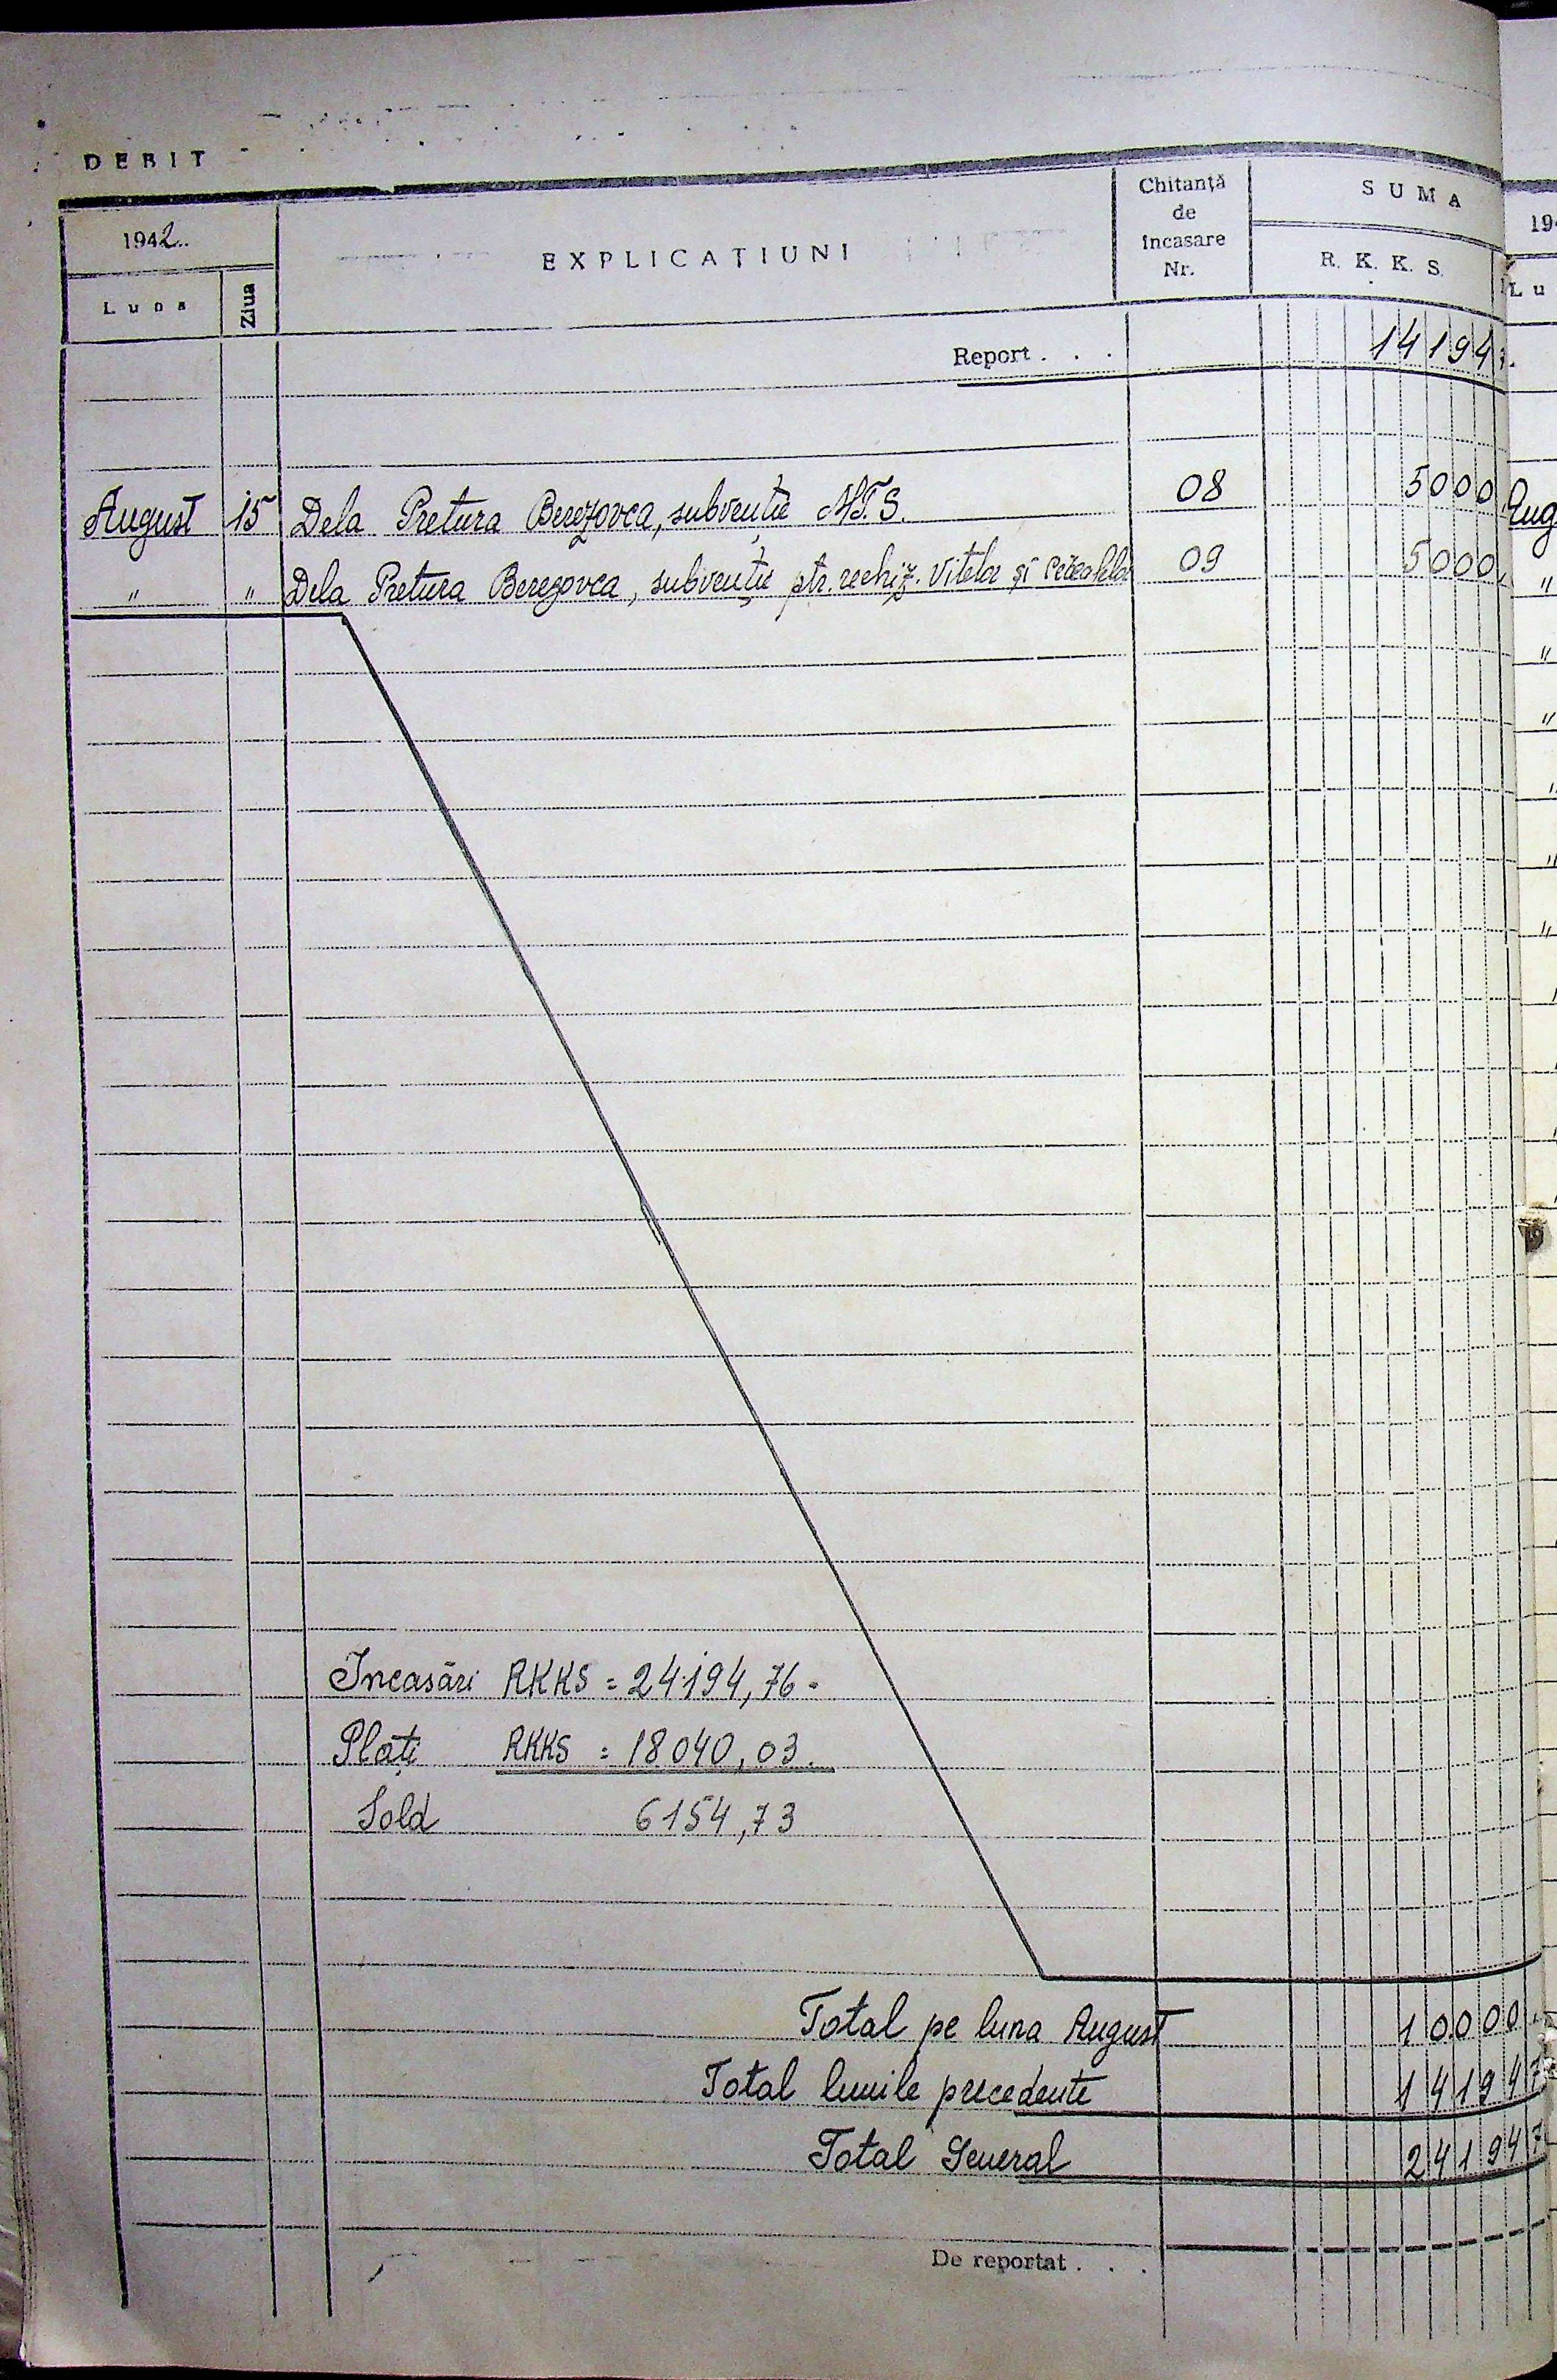 DEBIT
1942..
Luna
Ziua
EXPLICAȚIUNI
Chitanță
de
încasare
Nr.
SUMA
R. K. K. S.
Report . . . 14194 7
August 15 Dela Pretura Berezovca, subvenție M.T.S. 08 5000
" " Dela Pretura Berezovca, subvenție ptr. rechiz. Vitelor și cerealelor 09 5000.
Incasări RKKS = 24194,76.
Plăți RKKS = 18040,03.
Sold 6154,73
Total pe luna August 10000
Total lunile precedente 14194 7
Total General 24194 7
De reportat . . .
194
Lu
Aug
"
"
"
"
"
"